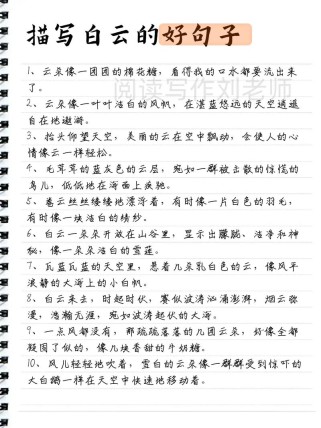 描写白云的好句子
阅读写作刘老师
1、云朵像一团团的棉花糖，看得我的口水都要流出来
了。
2、云朵像一叶叶洁白的风帆，在湛蓝悠远的天空逍遥
自在地遨游。
3、抬头仰望天空，美丽的云在空中飘动，会使人的心
情像云一样轻松。
4、毛茸茸的蓝灰色的云层，宛如一群被击散的惊慌的
鸟儿，低低地在海面上疾驰。
5、卷云丝丝缕缕地漂浮着，有时像一片白色的羽毛，
有时像一块洁白的绡纱。
6、白云一朵朵开放在山谷里，显示出朦胧、洁净和神
秘，像一朵朵洁白的雪莲。
7、瓦蓝瓦蓝的天空里，悬着几朵乳白色的云，像风平
浪静的大海上的小白帆。
8、白云来去，时起时伏，赛似波涛汹涌澎湃，烟云弥
漫，浩瀚无涯，宛如波涛起伏的大海。
9、一点风都没有，那疏疏落落的几团云朵，好像全都
凝固了似的，像几块香甜的牛奶糖。
10、风儿轻轻地吹着，雪白的云朵像一群群受到惊吓的
大白鹅一样在天空中快速地移动着。